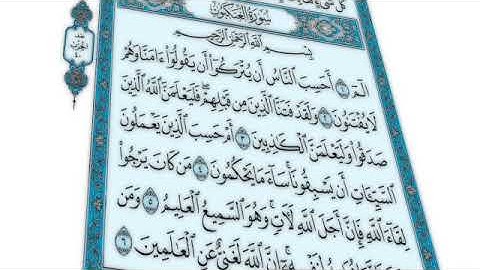 سُورَةُ الْعَنكَبُوتِ
بِسْمِ اللَّهِ الرَّحْمَٰنِ الرَّحِيمِ
الٓمٓ ١ أَحَسِبَ النَّاسُ أَن يُتْرَكُوٓا۟ أَن يَقُولُوٓا۟ ءَامَنَّا وَهُمْ
لَا يُفْتَنُونَ ٢ وَلَقَدْ فَتَنَّا الَّذِينَ مِن قَبْلِهِمْ ۖ فَلَيَعْلَمَنَّ اللَّهُ الَّذِينَ
صَدَقُوا۟ وَلَيَعْلَمَنَّ الْكَٰذِبِينَ ٣ أَمْ حَسِبَ الَّذِينَ يَعْمَلُونَ
السَّيِّـَٔاتِ أَن يَسْبِقُونَا ۚ سَآءَ مَا يَحْكُمُونَ ٤ مَن كَانَ يَرْجُوا۟
لِقَآءَ اللَّهِ فَإِنَّ أَجَلَ اللَّهِ لَـَٔاتٍ ۚ وَهُوَ السَّمِيعُ الْعَلِيمُ ٥ وَمَن
لِنَفْسِهِۦٓ ۚ إِنَّ اللَّهَ لَغَنِىٌّ عَنِ الْعَٰلَمِينَ ٦